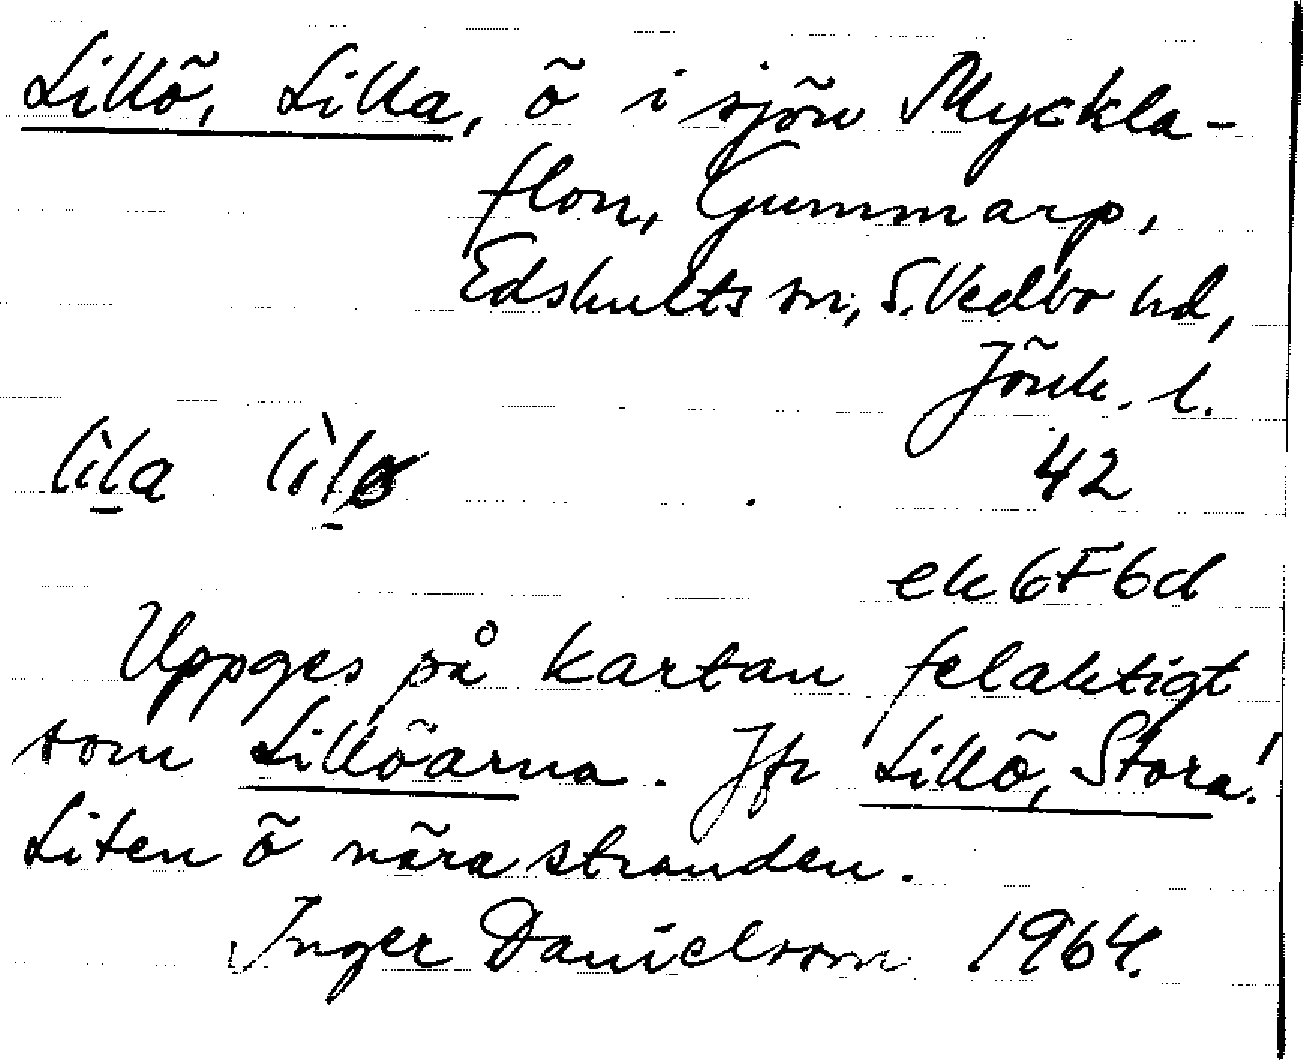 Lillö, Lilla, ö i sjön Myckla-
flon, Gummarp,
Edshults sn, S. Vedbo hd,
Jönk. l.
lìla lìlø 42
ek 6F6d
Uppges på kartan felaktigt
som Lillöarna. Jfr Lillö, Stora!
Liten ö nära stranden.
Inger Danielsson 1964.